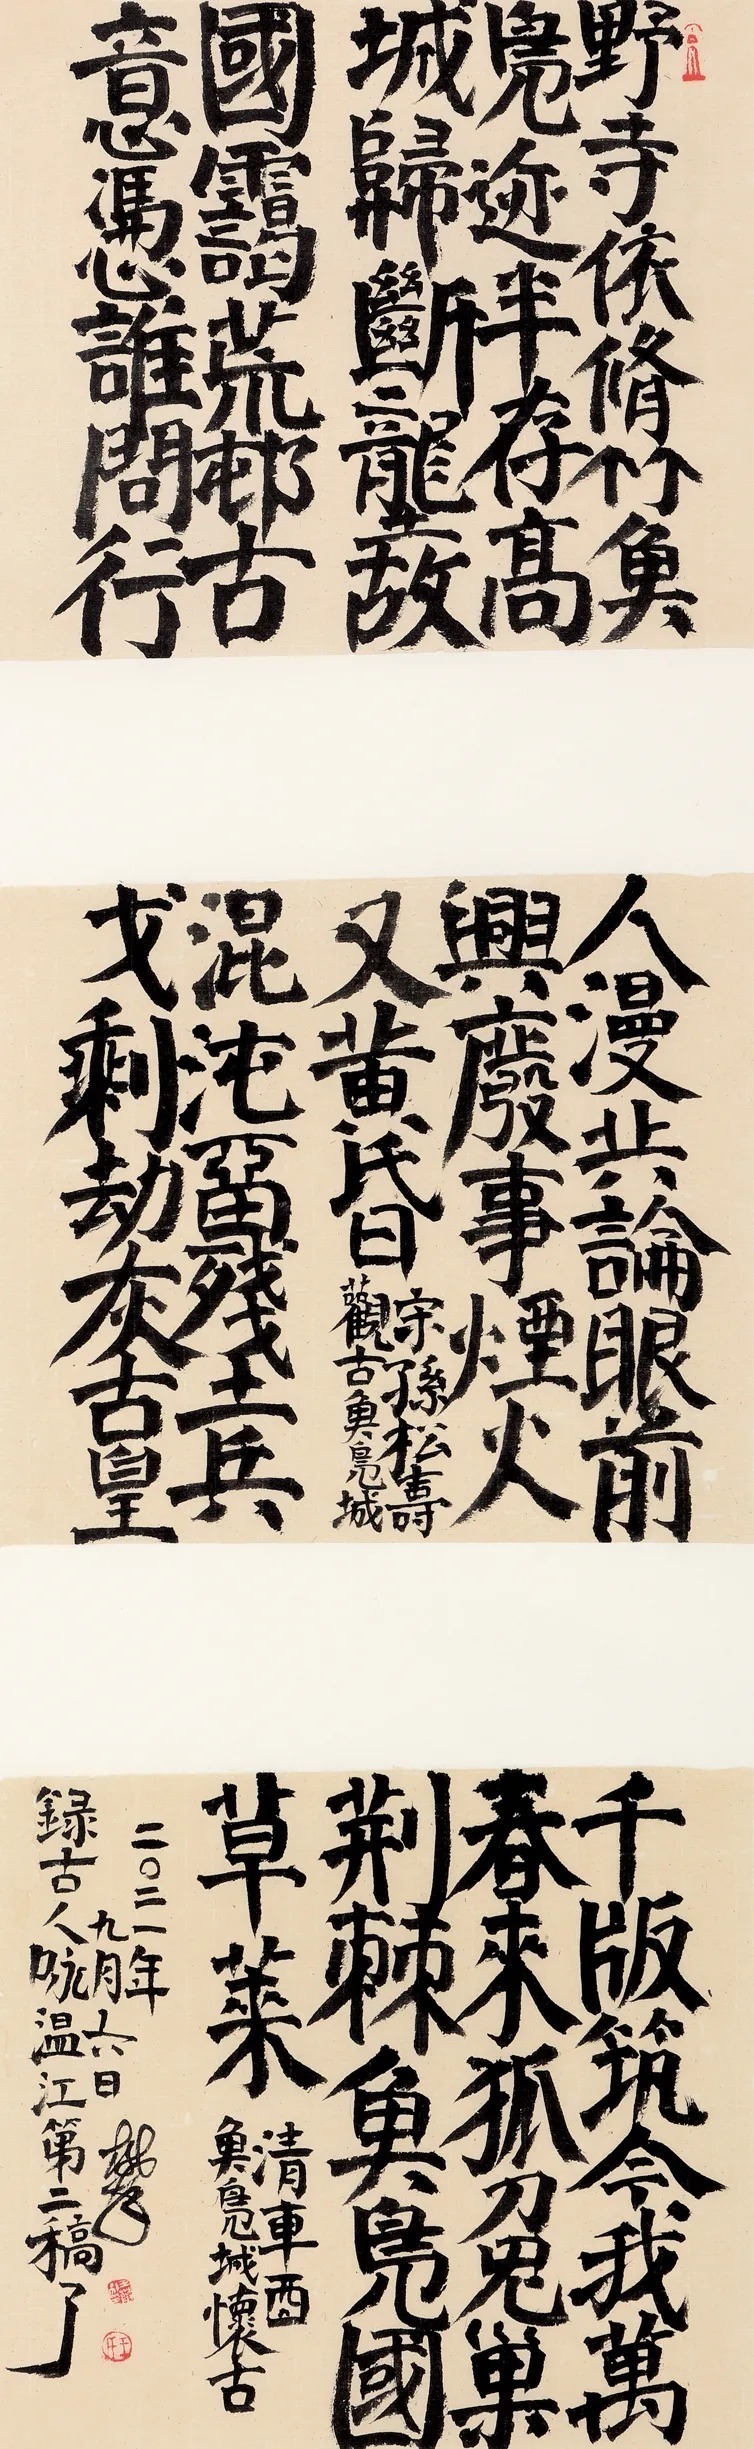 野寺依脩竹魚
鳧迹半存高
城歸斷壟故
國靄荒邨古
意憑誰問行
人漫共論眼前
興廢事煙火
又黃昏
宋孫松壽
觀古魚鳧城
混沌留殘土兵
戈剩劫灰古皇
千版筑今我萬
春來狐兔巢
荊棘魚鳧國
草萊
清車酉
魚鳧城懷古
二〇二一年
九月六日
録古人咏温江第二稿了